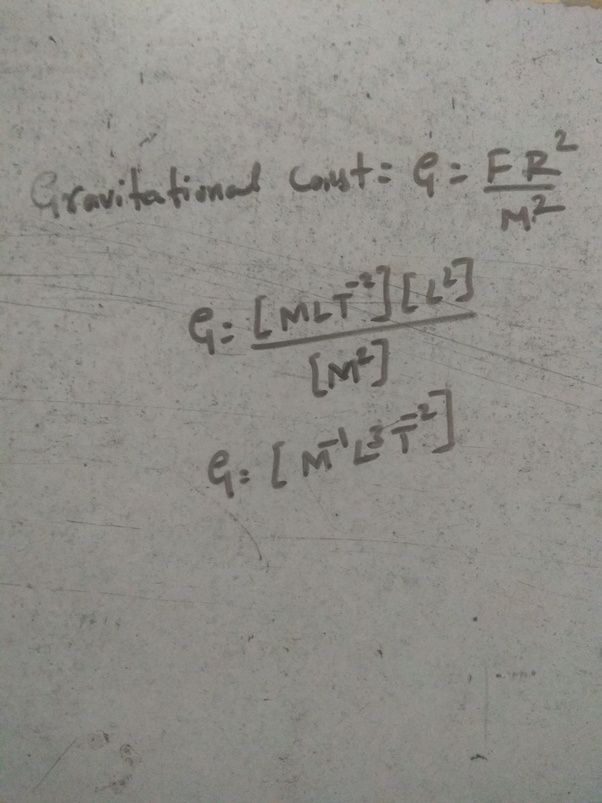 Gravitational Const = G = FR²/M²
G = [MLT⁻²][L²]/[M²]
G = [M⁻¹L³T⁻²]